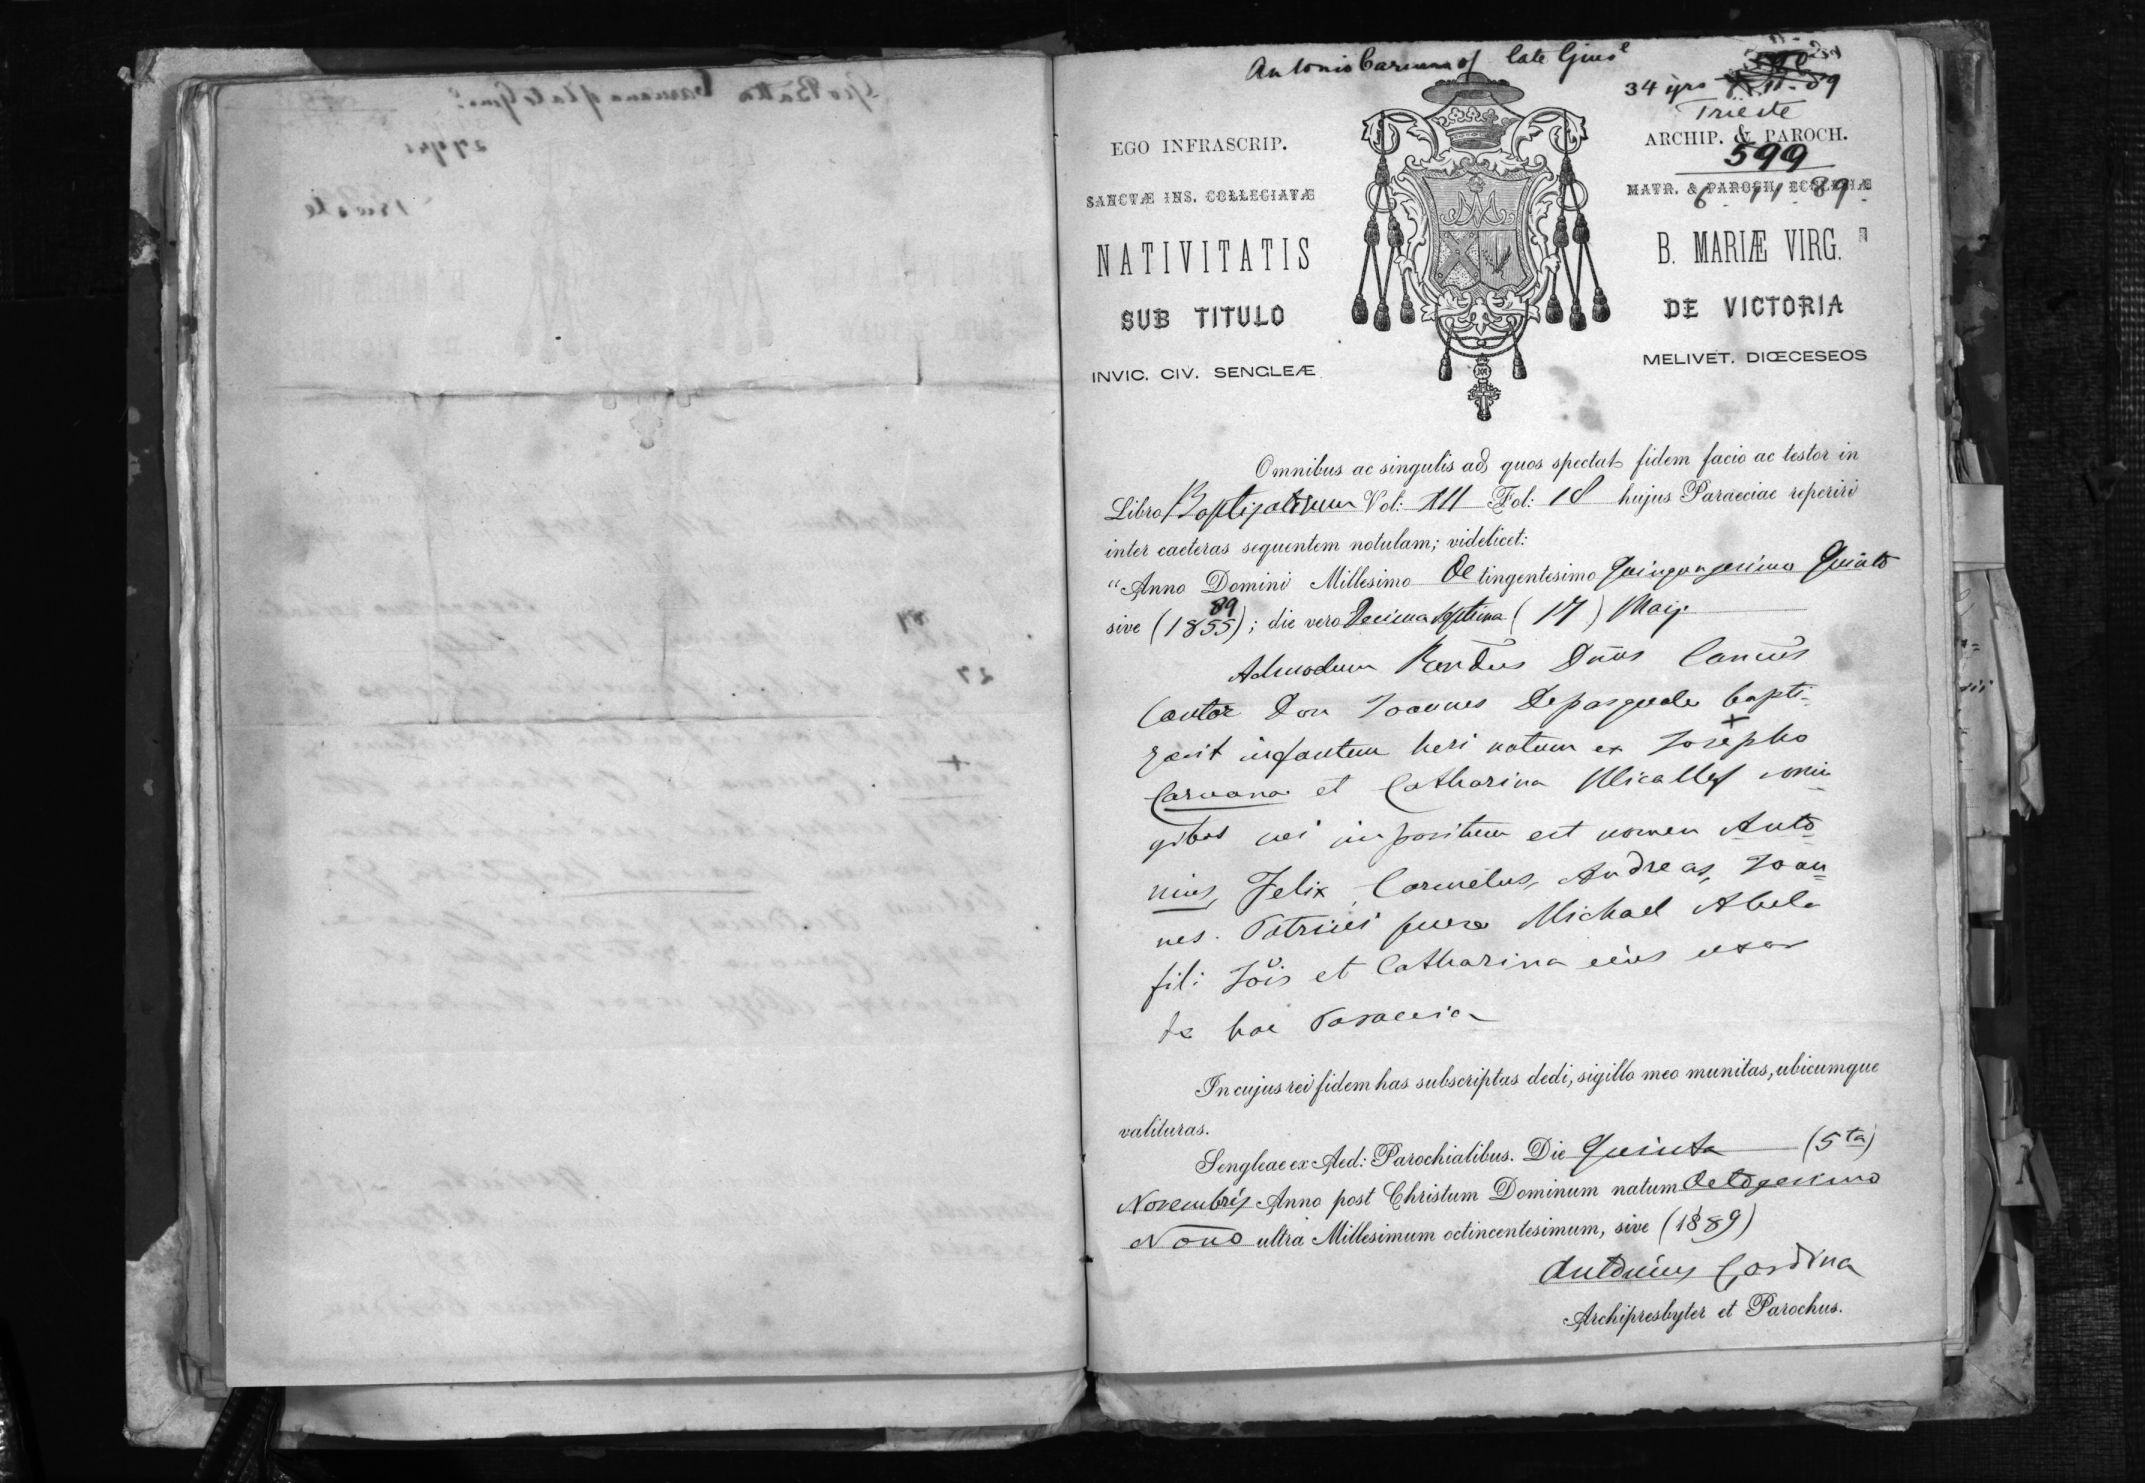 Antonio Caruana of late Gius^e
34 yrs
Trieste
599
6 - 11 - 89.
EGO INFRASCRIP.
ARCHIP. & PAROCH.
SANCTÆ INS. COLLEGIATÆ
MATR. & PAROCH. ECCLESIÆ
NATIVITATIS
B. MARIÆ VIRG.
SUB TITULO
DE VICTORIA
INVIC. CIV. SENGLEÆ
MELIVET. DIŒCESEOS
Omnibus ac singulis ad quos spectat fidem facio ac testor in
Libro Baptizatorum Vol: XII Fol: 18 hujus Paraeciae reperiri
inter caeteras sequentem notulam; videlicet:
"Anno Domini Millesimo Octingentesimo Quinquagesimo Quinto
89
sive (1855); die vero Decima septima (17) Maij.
Admodum Rendus Dnus Cancus
Cantor Don Joannes Depasquale bapti-
+
zavit infantem heri natum ex Josepho
Caruana et Catharina Micallef coniu-
gibus cui impositum est nomen Anto-
nius, Felix, Carmelus, Andreas, Joan=
nes. Patrini fuere Michael Abela
fil: Jois et Catharina eius uxor
ex hac Paraecia
In cujus rei fidem has subscriptas dedi, sigillo meo munitas, ubicumque
valituras.
Sengleae ex Aed: Parochialibus. Die Quinta (5ta)
Novembris Anno post Christum Dominum natum Octogesimo
Nono ultra Millesimum octincentesimum, sive (1889)
Antonius Cardina
Archipresbyter et Parochus.